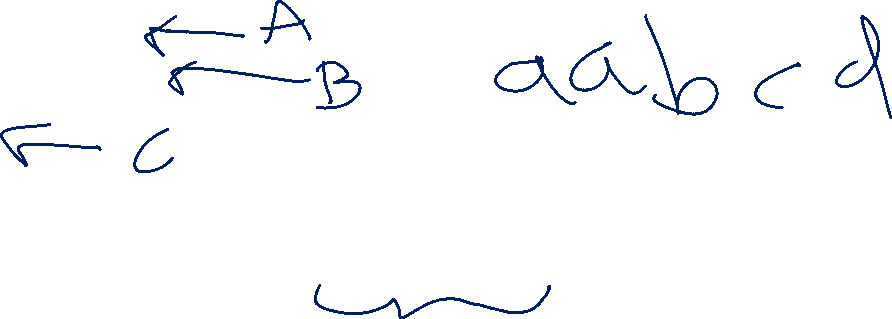 ← A
← B
← C
aabcd